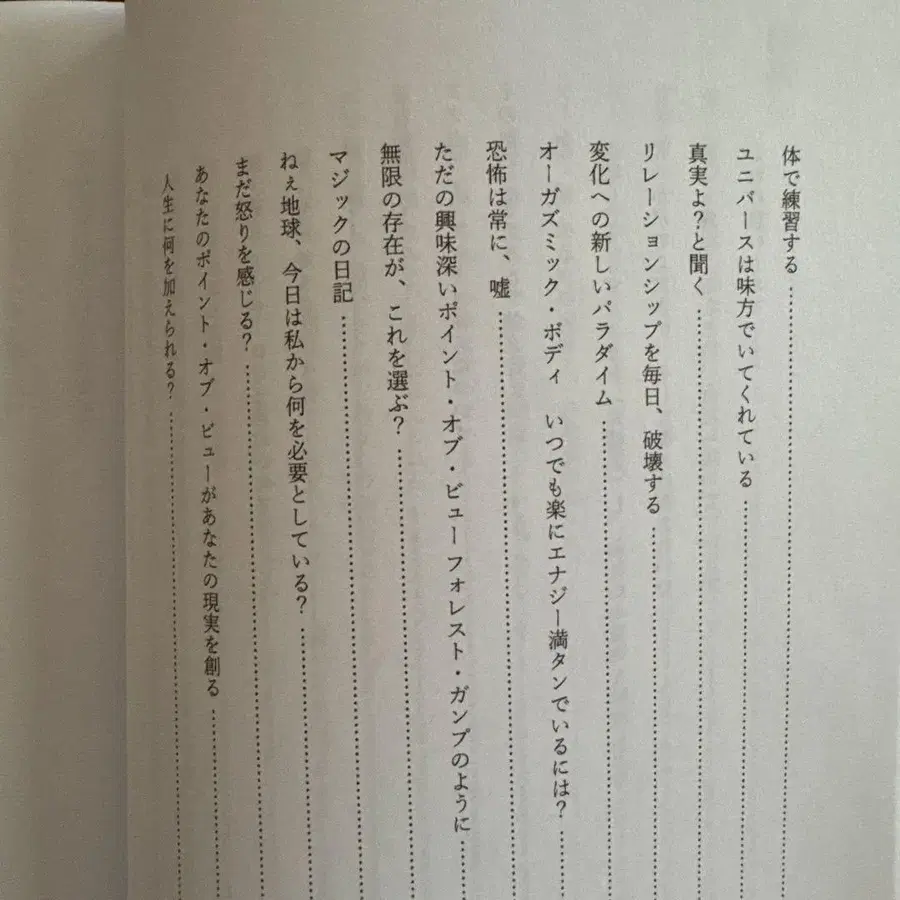 体で練習する
ユニバースは味方でいてくれている
真実よ？と聞く
リレーションシップを毎日、破壊する
変化への新しいパラダイム
オーガズミック・ボディ　いつでも楽にエナジー満タンでいるには？
恐怖は常に、嘘
ただの興味深いポイント・オブ・ビュー フォレスト・ガンプのように
無限の存在が、これを選ぶ？
マジックの日記
ねぇ地球、今日は私から何を必要としている？
まだ怒りを感じる？
あなたのポイント・オブ・ビューがあなたの現実を創る
人生に何を加えられる？